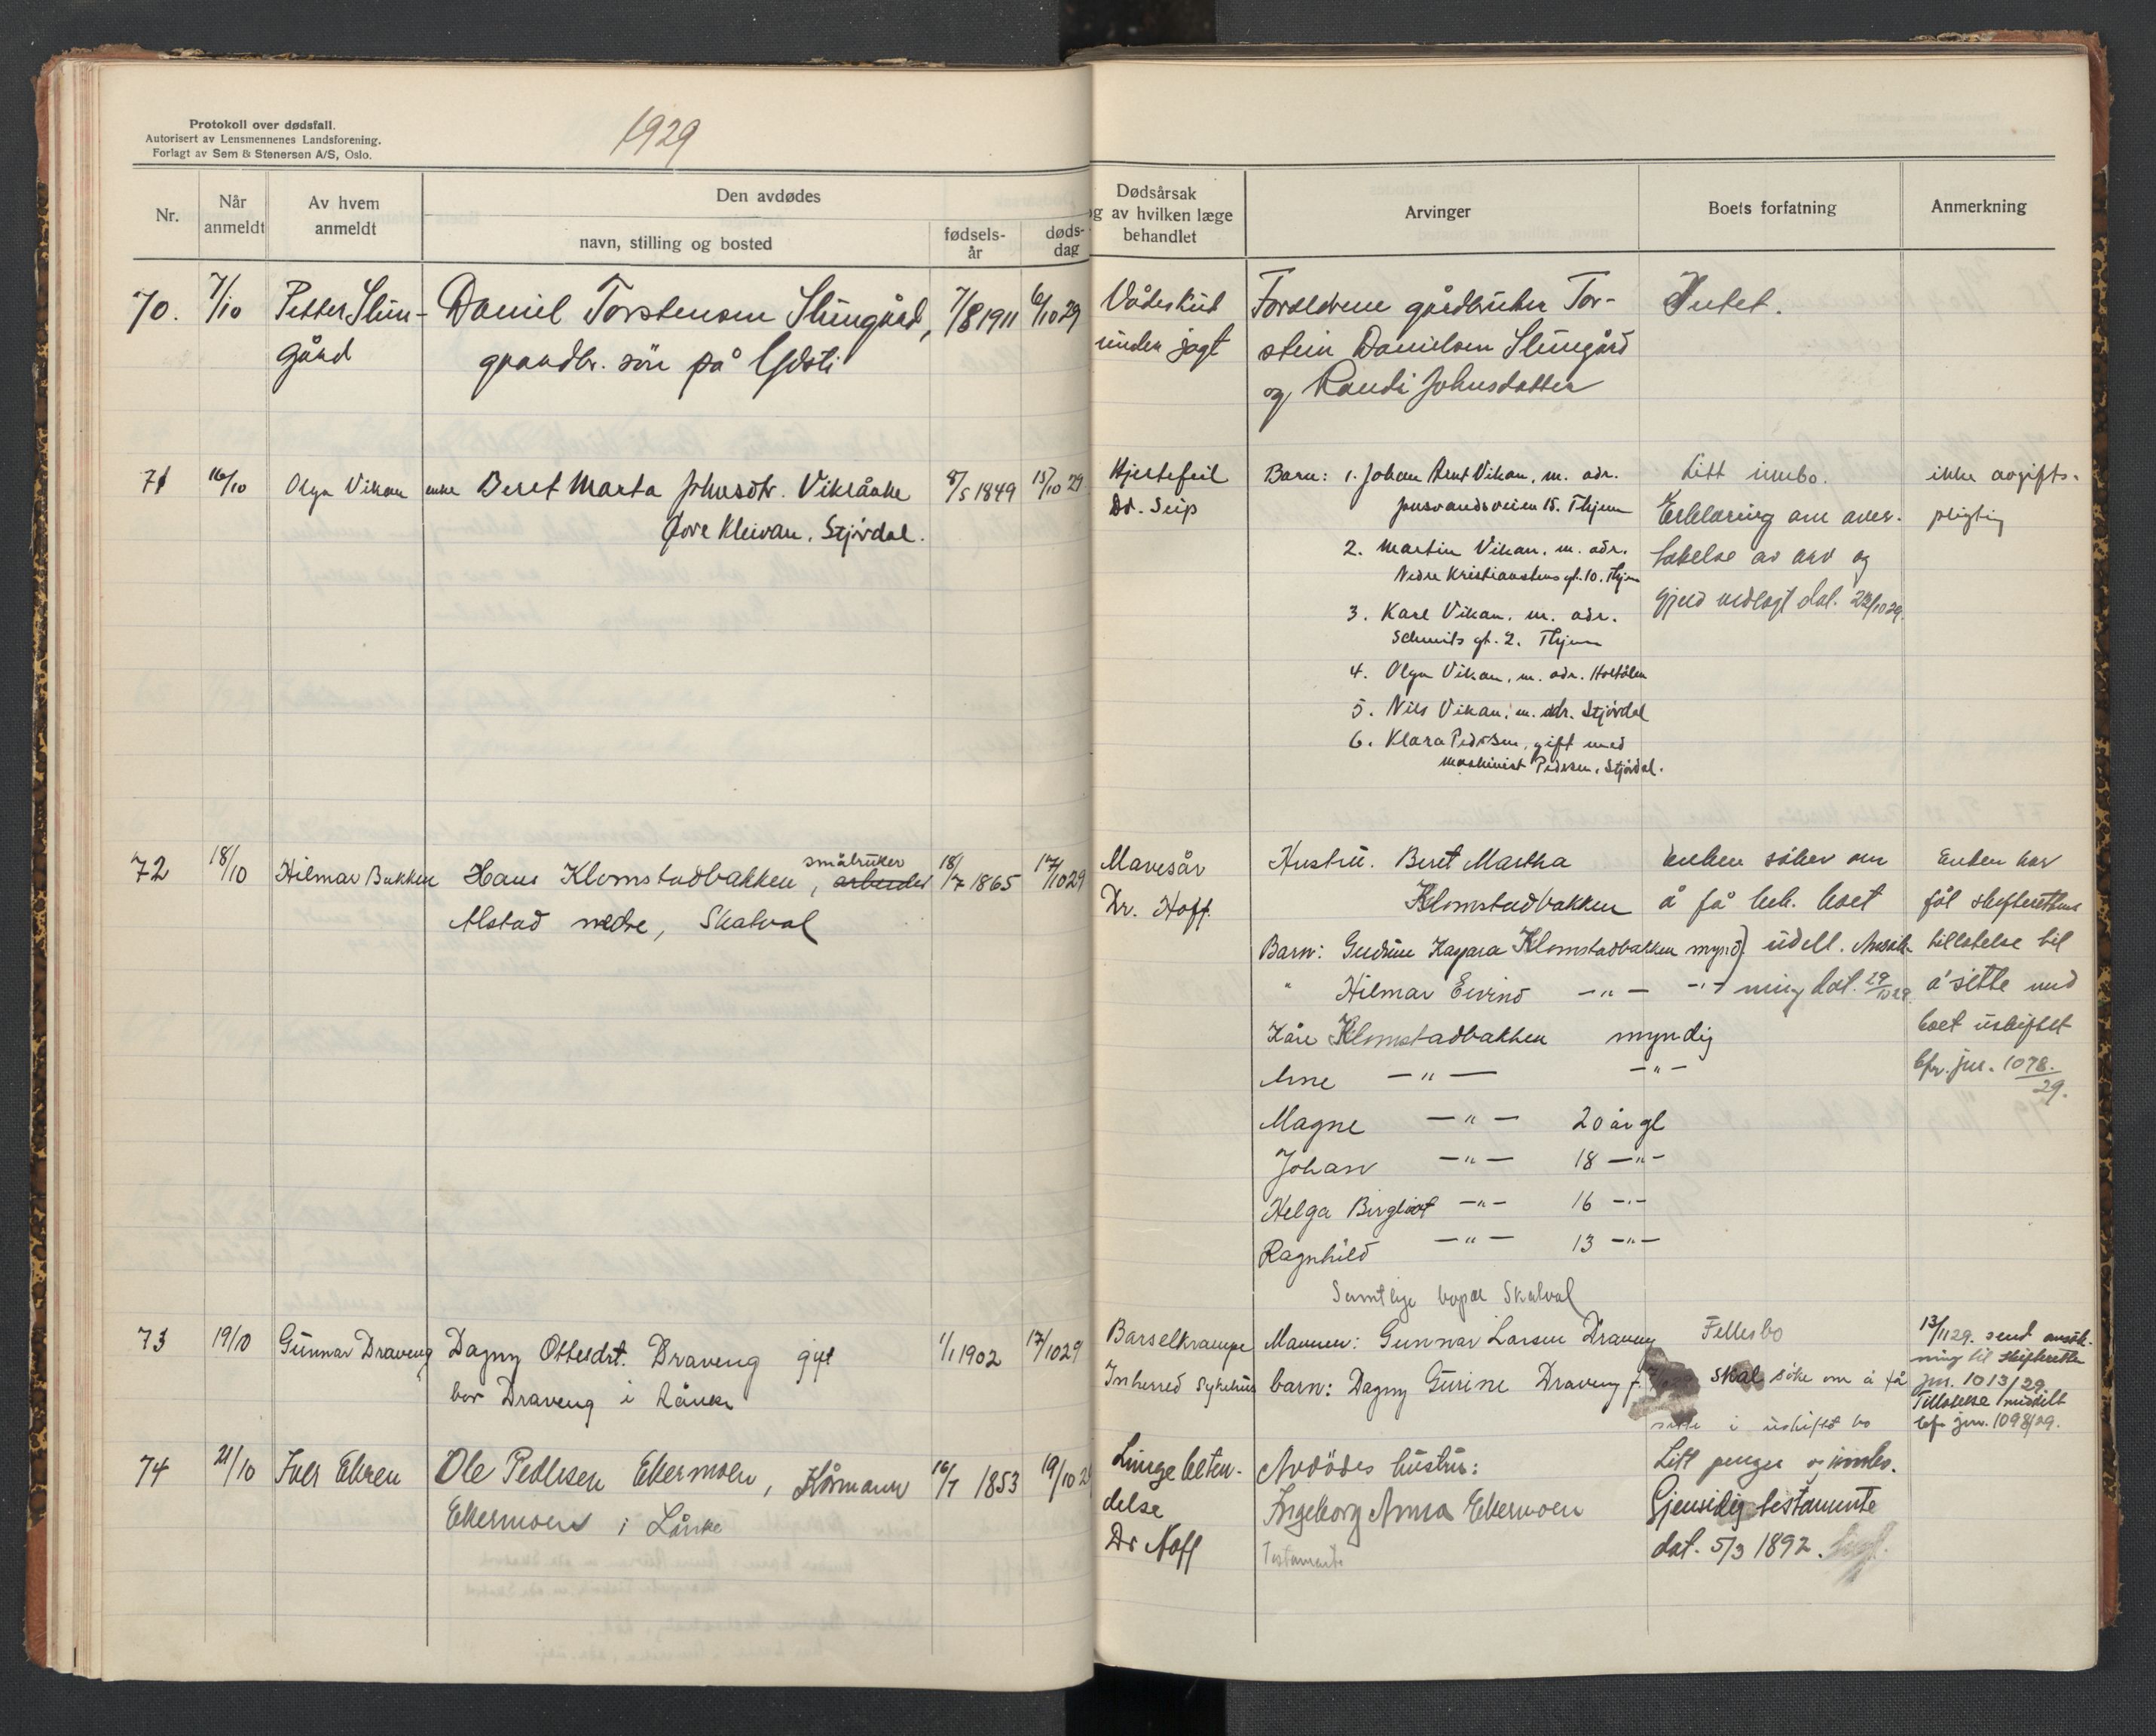 Protokoll over dødsfall.
Autorisert av Lensmennenes Landsforening.
Forlagt av Sem & Stenersen A/S, Oslo.
1929
Nr.
Når anmeldt
Av hvem anmeldt
Den avdødes
navn, stilling og bosted
fødsels-år
døds-dag
Dødsårsak
og av hvilken læge
behandlet
Arvinger
Boets forfatning
Anmerkning
70. 7/10 Petter Slun- Daniel Torstensen Slungård, 7/8 1911 6/10 29 Vådeskud Foreldrene gårdbruker Tor- Intet.
gård gaardbr. sön på under jagt stein Danielsen Slungård
og Randi Johnsdatter
71 16/10 Olga Vikan enke Beret Marta Johnsdtr. Viksånke 8/5 1849 15/10 29 Hjertefeil Barn: 1. Johan Arnt Vikan, m. adr. Litt innbo. ikke avgifts-
Øvre Kleivan, Stjördal. Dr. Seip 15. Thjem Erklæring om over- pligtig
2. Martin Vikan, m. adr. takelse av arv og
Nedre Kristianstens gt. 10. Thjem gjeld vedlagt dat. 23/10 29.
3. Karl Vikan, m. adr.
Schmits gt. 2. Thjem
4. Olga Vikan, m. adr. Holtålen
5. Nils Vikan, m. adr. Stjördal
6. Klara Pedersen, gift med
maskinist Pedersen, Stjördal.
72 18/10 Hilmar Bakken Hans Klomstadbakken, småbruker arbeider 18/7 1865 17/10 29 Mavesår Hustru. Beret Martha Enken söker om Enken har
Alstad nedre, Skatval Dr. Hoff. Klomstadbakken å få beh. boet fåt skifterettens
Barn: Gudrun Kaspara Klomstadbakken mynd. udelt. Ansök- tillatelse til
" Hilmar Eivind -"- -"- ning dat. 29/10 29. å sitte med
Kåre Klomstadbakken myndig boet uskiftet
Arne -"- -"- cfr. jnr. 1078/29.
Magne -"- 20 år gl
Johan -"- 18 -"-
Helga Bergliot -"- 16 -"-
Ragnhild -"- 13 -"-
Samtlige bopæl Skatval
73 19/10 Gunnar Draveng Dagny Ottesdt. Draveng gift 1/1 1902 17/10 29 Barselkrampe Mannen: Gunnar Larsen Draveng Fellesbo 13/11 29. send ansök-
bor Draveng i Lånke Innherred Sykehus barn: Dagny Gurine Draveng f. skal söke om å få ning til skifteretten
jnr. 1013/29.
sitte i uskiftet bo Tillatelse meddelt
cfr jnr. 1098/29.
74 21/10 Iver Ekren Ole Pedersen Ekermoen, Kårmann 16/7 1853 19/10 29 Lungebeten- Avdödes hustru: Litt penger og innbo.
Ekermoen i Lånke delse Ingeborg Anna Ekermoen Gjensidig testamente
Dr Hoff Testamente dat. 5/3 1892.